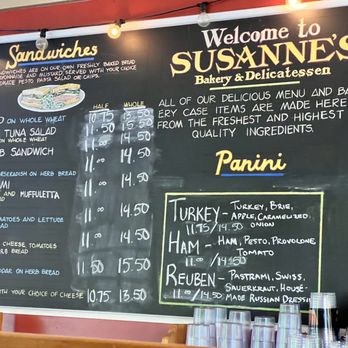 Sandwiches
SANDWICHES ARE ON OUR FRESHLY BAKED BREAD
MAYONNAISE AND MUSTARD SERVED WITH YOUR CHOICE
PESTO PASTA SALAD OR CHIPS
HALF WHOLE
ON WHOLE WHEAT 10.75 13.50
TUNA SALAD 11.50 15.50
ON WHOLE WHEAT
SANDWICH 11.00 14.50
HORSERADISH ON HERB BREAD 11.00 14.50
AND MUFFULETTA 11.00 14.50
TOMATOES AND LETTUCE 11.00 14.50
BREAD
CHEESE TOMATOES 11.00 14.50
HERB BREAD
CHEDDAR ON HERB BREAD 11.50 15.50
WITH YOUR CHOICE OF CHEESE 10.75 13.50
Welcome to
SUSANNE'S
Bakery & Delicatessen
ALL OF OUR DELICIOUS MENU AND BAK
ERY CASE ITEMS ARE MADE HERE
FROM THE FRESHEST AND HIGHEST
QUALITY INGREDIENTS.
Panini
TURKEY - TURKEY, BRIE,
APPLE, CARAMELIZED
11.75/14.50 ONION
HAM - HAM, PESTO, PROVOLONE
TOMATO
11.00/14.50
REUBEN - PASTRAMI, SWISS,
SAUERKRAUT, HOUSE-
11.00/14.50 MADE RUSSIAN DRESSING